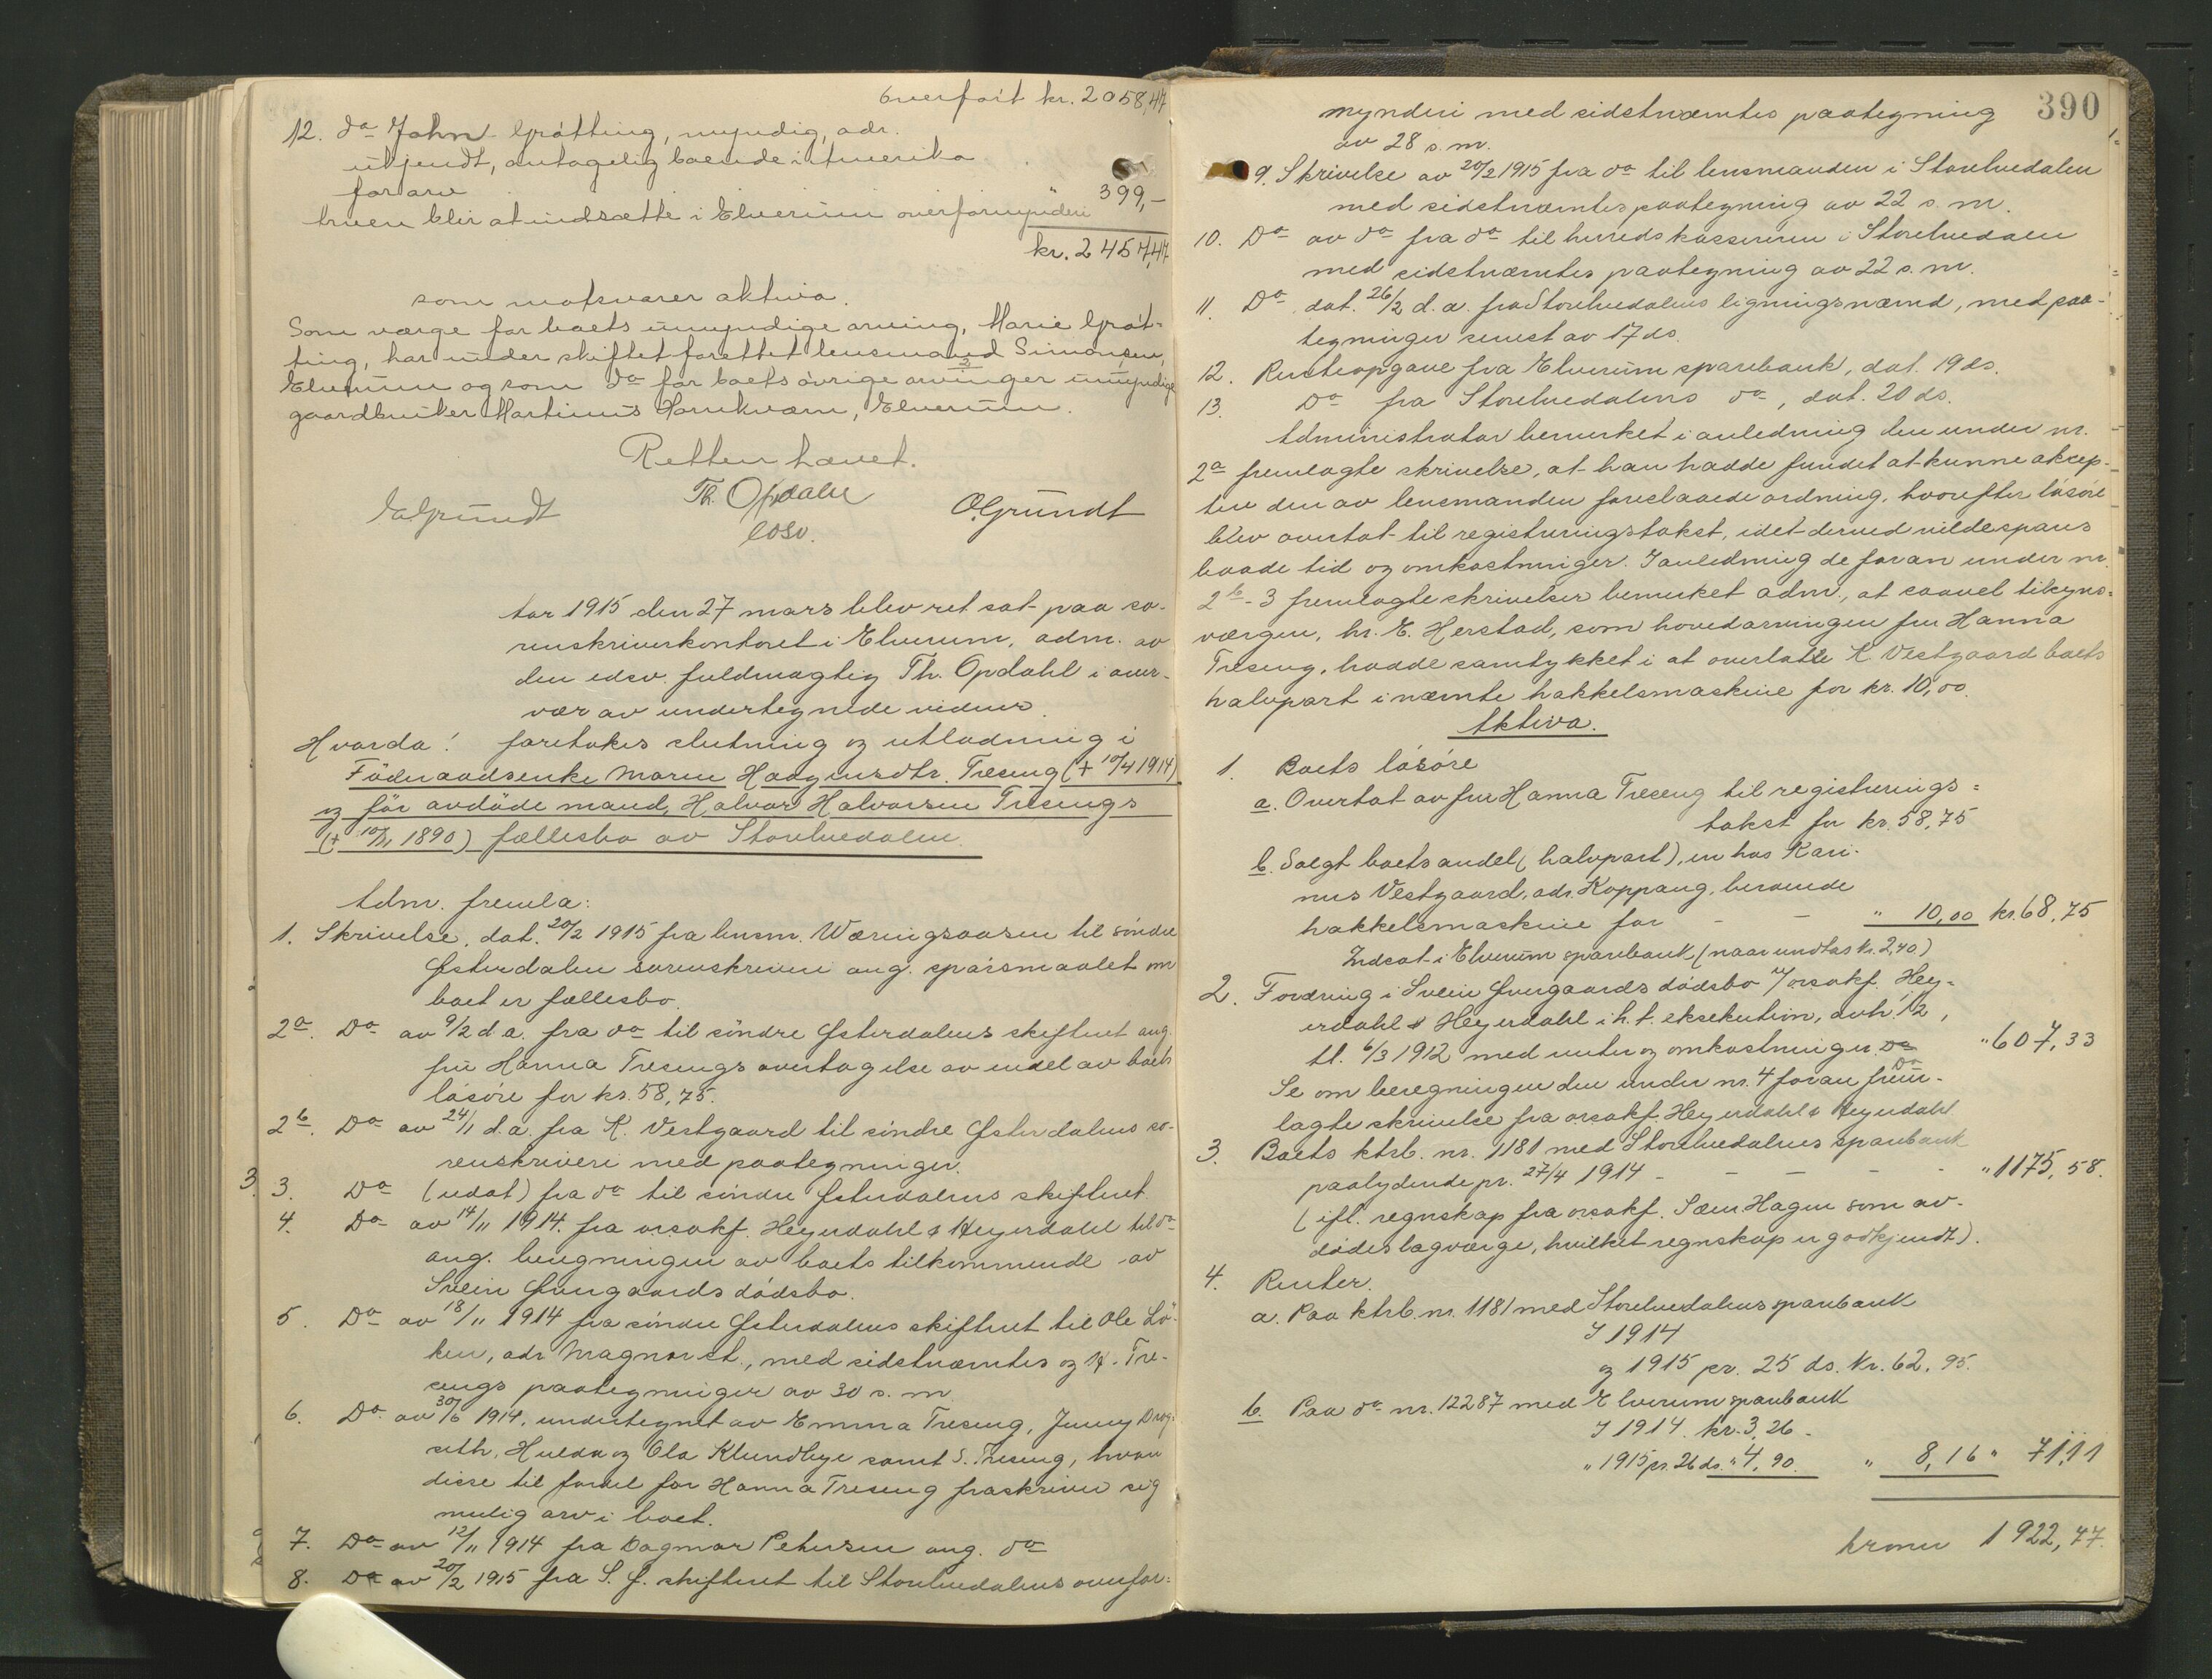 Overført kr. 2058,47
12. do John Grøtting, myndig, adr.
ukjendt, antagelig boende i Amerika
for arv " 399,-
Arven blir at indsætte i Elverum overformynderi
kr. 2457,47
som motsvarer aktiva.
Som værge for boets umyndige arving, Marie Grøt-
ting, har under skiftet forettet lensmand Simonsen,
Elverum og som do for boets øvrige arvinger umyndige
gaardbruker Martinus Hornkværn, Elverum.
Retten hævet.
Th. Opdahl
O. Grundt
edsv.
Aar 1915 den 27 mars blev ret sat paa so-
renskriverkontoret i Elverum, adm. av
den edsv. fuldmægtig Th. Opdahl i over-
vær av undertegnede vidner.
Hvorda: foretokes slutning og utlodning i
Föderaadsenke Maren Haagensdtr. Træseng (+ 10/4 1914)
og før avdøde mand, Halvor Halvorsen Træsengs
(+ 10/11 1890) fællesbo av Storelvedalen.
Adm. fremla:
1. Skrivelse, dat. 20/2 1915 fra lensm. Wæringsaasen til søndre
Østerdalen sorenskriveri ang. spørsmaalet om
boet er fællesbo.
2a. Do av 9/2 d.a. fra do til søndre Østerdalens skifteret ang.
fru Hanna Træsengs overtagelse av endel av boets
løsøre for kr. 58,75.
2b. Do av 24/1 d.a. fra K. Vestgaard til søndre Østerdalens so-
renskriveri med paategninger.
3. 3. Do (udat) fra do til søndre Østerdalens skifteret.
4. Do av 14/11 1914 fra orsakf. Heyerdahl & Heyerdahl til do
ang. beregningen av boets tilkommende av
Svein Øvergaards dødsbo.
5. Do av 18/11 1914 fra søndre Østerdalens skifteret til Ole Lø-
ken, adr. Magnor st., med sidstnævntes og H. Træ-
sengs paategninger av 30 s. m.
6. Do av 30/6 1914, undertegnet av Emma Træseng, Jenny Drog-
seth, Hulda og Ola Klundbye samt S. Træseng, hvori
disse til fordel for Hanna Træseng fraskriver sig
mulig arv i boet.
7. Do av 12/11 1914 fra Dagmar Petersen ang. do
8. Do av 20/2 1915 fra S. Ø. skifteret til Storelvedalens overfor-
390
mynderi med sidstnævntes paategning
av 28 s. m.
9. Skrivelse av 20/2 1915 fra do til lensmanden i Storelvedalen
med sidstnævntes paategning av 22 s. m.
10. Do av do fra do til herredskassereren i Storelvedalen
med sidstnævntes paategning av 22 s. m.
11. Do dat. 26/2 d. a. fra Storelvedalens ligningsnævnd, med paa-
tegninger senest av 17 ds.
12. Renteopgave fra Elverum sparebank, dat. 19 ds.
13. Do fra Storelvedalens do, dat. 20 ds.
Administrator bemerket i anledning den under nr.
2a fremlagte skrivelse, at han hadde fundet at kunne aksep-
tere den av lensmanden foreslaaede ordning, hvorefter løsøre
blev overtat til registreringstakst, idet derved vilde spares
baade tid og omkostninger. I anledning de foran under nr.
2b-3 fremlagte skrivelser bemerket adm., at saavel tilsyns-
værgen, hr. E. Herstad, som hovedarvingen fru Hanna
Træseng, hadde samtykket i at overlatte K. Vestgaard boets
halvpart i nævnte hakkelsmaskine for kr. 10,00.
Aktiva.
1. Boets løsøre
a. Overtat av fru Hanna Træseng til registrerings-
takst for kr. 58,75
b. Solgt boets andel (halvpart), en hos Kari-
nus Vestgaard, adr. Koppang, beroende
hakkelsmaskine for - - " 10,00 kr. 68,75
Indsat i Elverum sparebank (naar undtas kr. 2,40)
2. Fordring i Svein Øvergaards dødsbo v/ orsakf. Hey-
erdahl & Heyerdahl i h. t. eksekution, avh. 1/2,
tl. 6/3 1912 med renter og omkostninger " 607,33
Se om beregningen den under nr. 4 foran frem-
lagte skrivelse fra orsakf. Heyerdahl & Heyerdahl
3. Boets ktrb. nr. 1181 med Storelvedalens sparebank
paalydende pr. 27/4 1914 - - - - " 1175,58.
(ifl. regnskap fra orsakf. Sæm Hagen som av-
dødes lagværge, hvilket regnskap er godkjendt).
4. Renter.
a. Paa ktrb. nr. 1181 med Storelvedalens sparebank
I 1914
og 1915 pr. 25 ds. kr. 62,95.
b. Paa do nr. 12287 med Elverum sparebank
I 1914 kr. 3,26 -
" 1915 pr. 26 ds. " 4,90. " 8,16 " 71,11
kroner 1922,77.